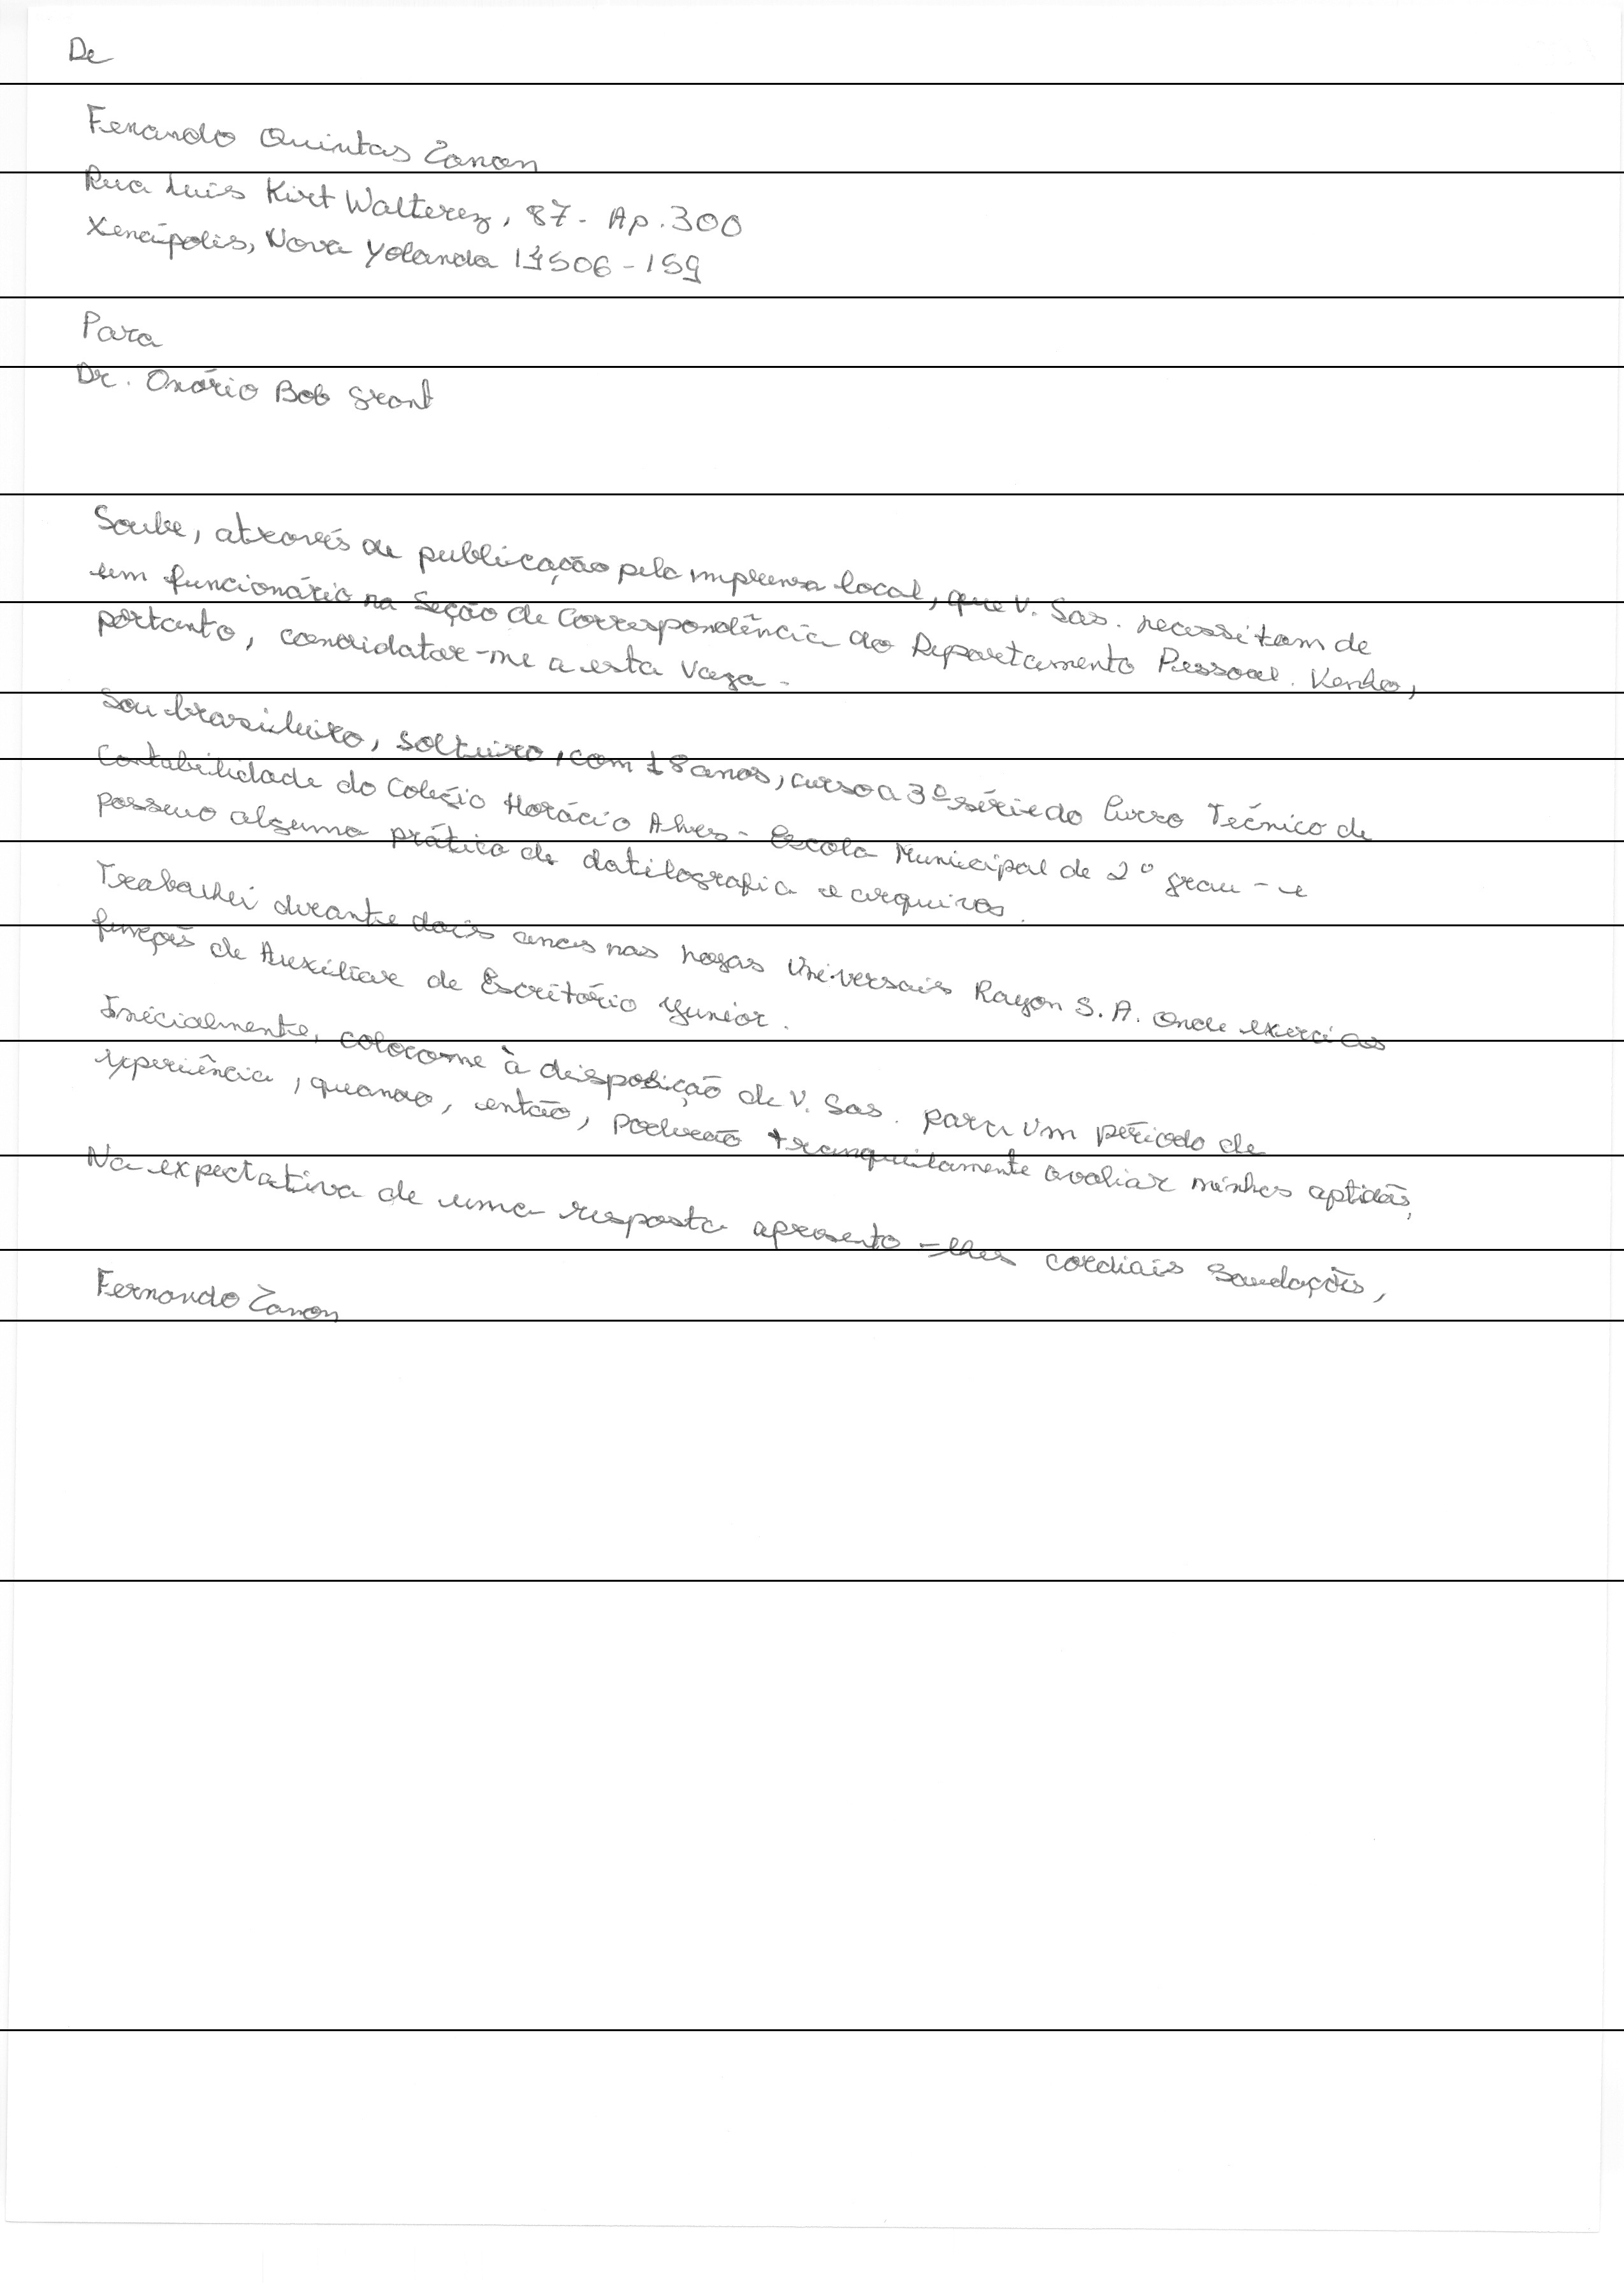 De
Fenando Quintas Zanon
Rua Luis Kirt Walterez, 87 - Ap. 300
Xenápolis, Nova Yolanda 506-159
Para
Dr. Onório Bob Grant
Soube, através de publicação pela imprensa local, que V. Sas. necessitam de
um funcionário na Seção de Correspondência do Departamento Pessoal. Venho,
portanto, candidatar-me a esta vaga.
Sou brasileiro, solteiro, com 18 anos, curso a 3ª série do Curso Técnico de
Contabilidade do Colégio Horácio Alves - Escola Municipal de 2º grau - e
possuo alguma prática de datilografia e arquivos.
Trabalhei durante dois anos nas Universais Rayon S. A. onde exerci as
funções de Auxiliar de Escritório Yunior.
Inicialmente, coloco-me à disposição de V. Sas. para um período de
experiência, quando, então, poderão tranquilamente avaliar minhas aptidões,
Na expectativa de uma resposta apresento-lhes cordiais saudações,
Fernando Zanon